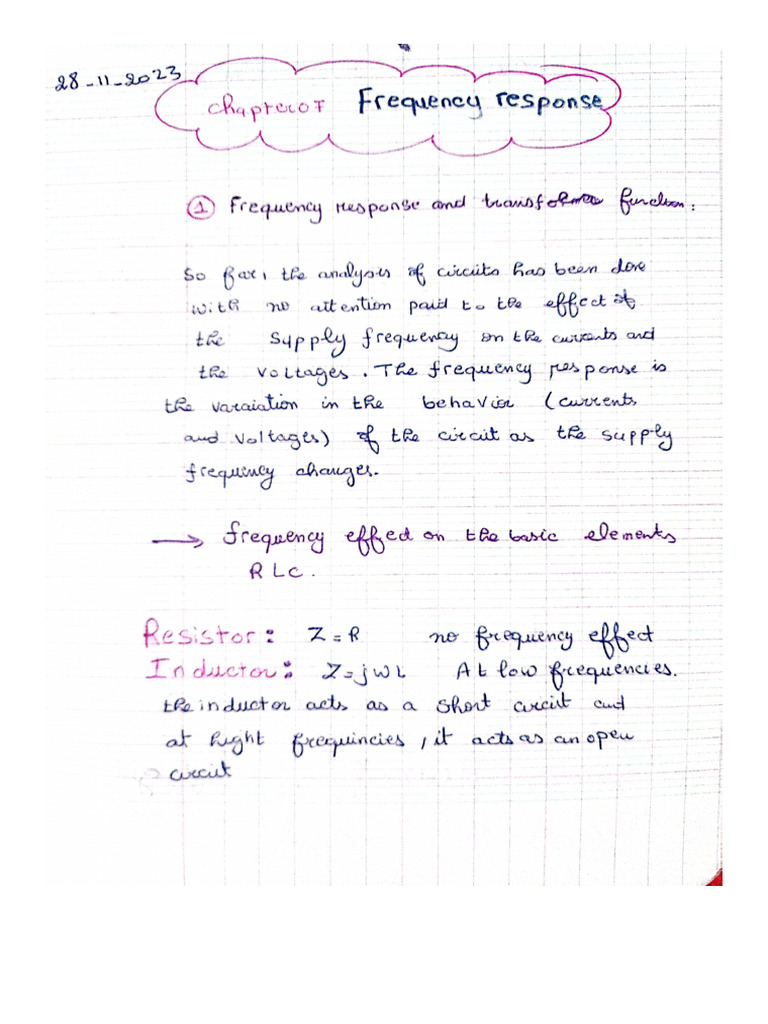 28-11-2023
Chapter 07 Frequency response
① Frequency response and transforme function:
So far, the analysis of circuits has been done
with no attention paid to the effect of
the supply frequency on the currents and
the voltages. The frequency response is
the varaiation in the behavior (currents
and voltages) of the circuit as the supply
frequency changes.
→ frequency effect on the basic elements
RLC.
Resistor: Z=R no frequency effect
Inductor: Z=jwL At low frequencies.
the inductor acts as a short circuit and
at hight frequincies, it acts as an open
circuit